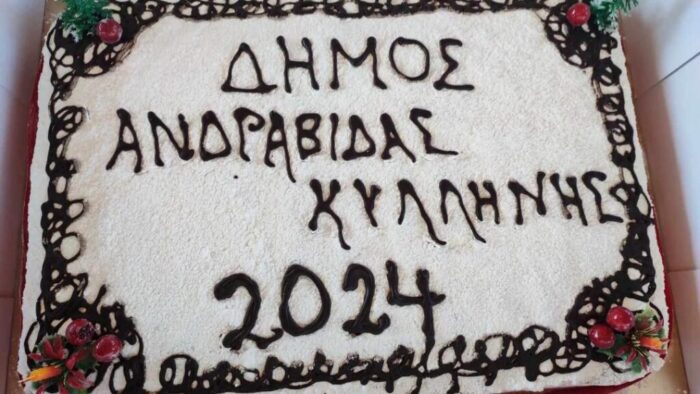 ΔΗΜΟΣ
ΑΝΔΡΑΒΙΔΑΣ
ΚΥΛΛΗΝΗΣ
2024